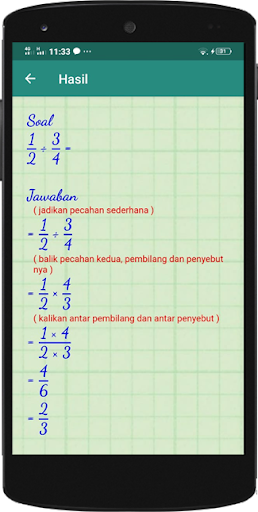 11:33
← Hasil
Soal
1/2 ÷ 3/4 =
Jawaban
( jadikan pecahan sederhana )
= 1/2 ÷ 3/4
( balik pecahan kedua, pembilang dan penyebut
nya )
= 1/2 × 4/3
( kalikan antar pembilang dan antar penyebut )
= 1 × 4/2 × 3
= 4/6
= 2/3